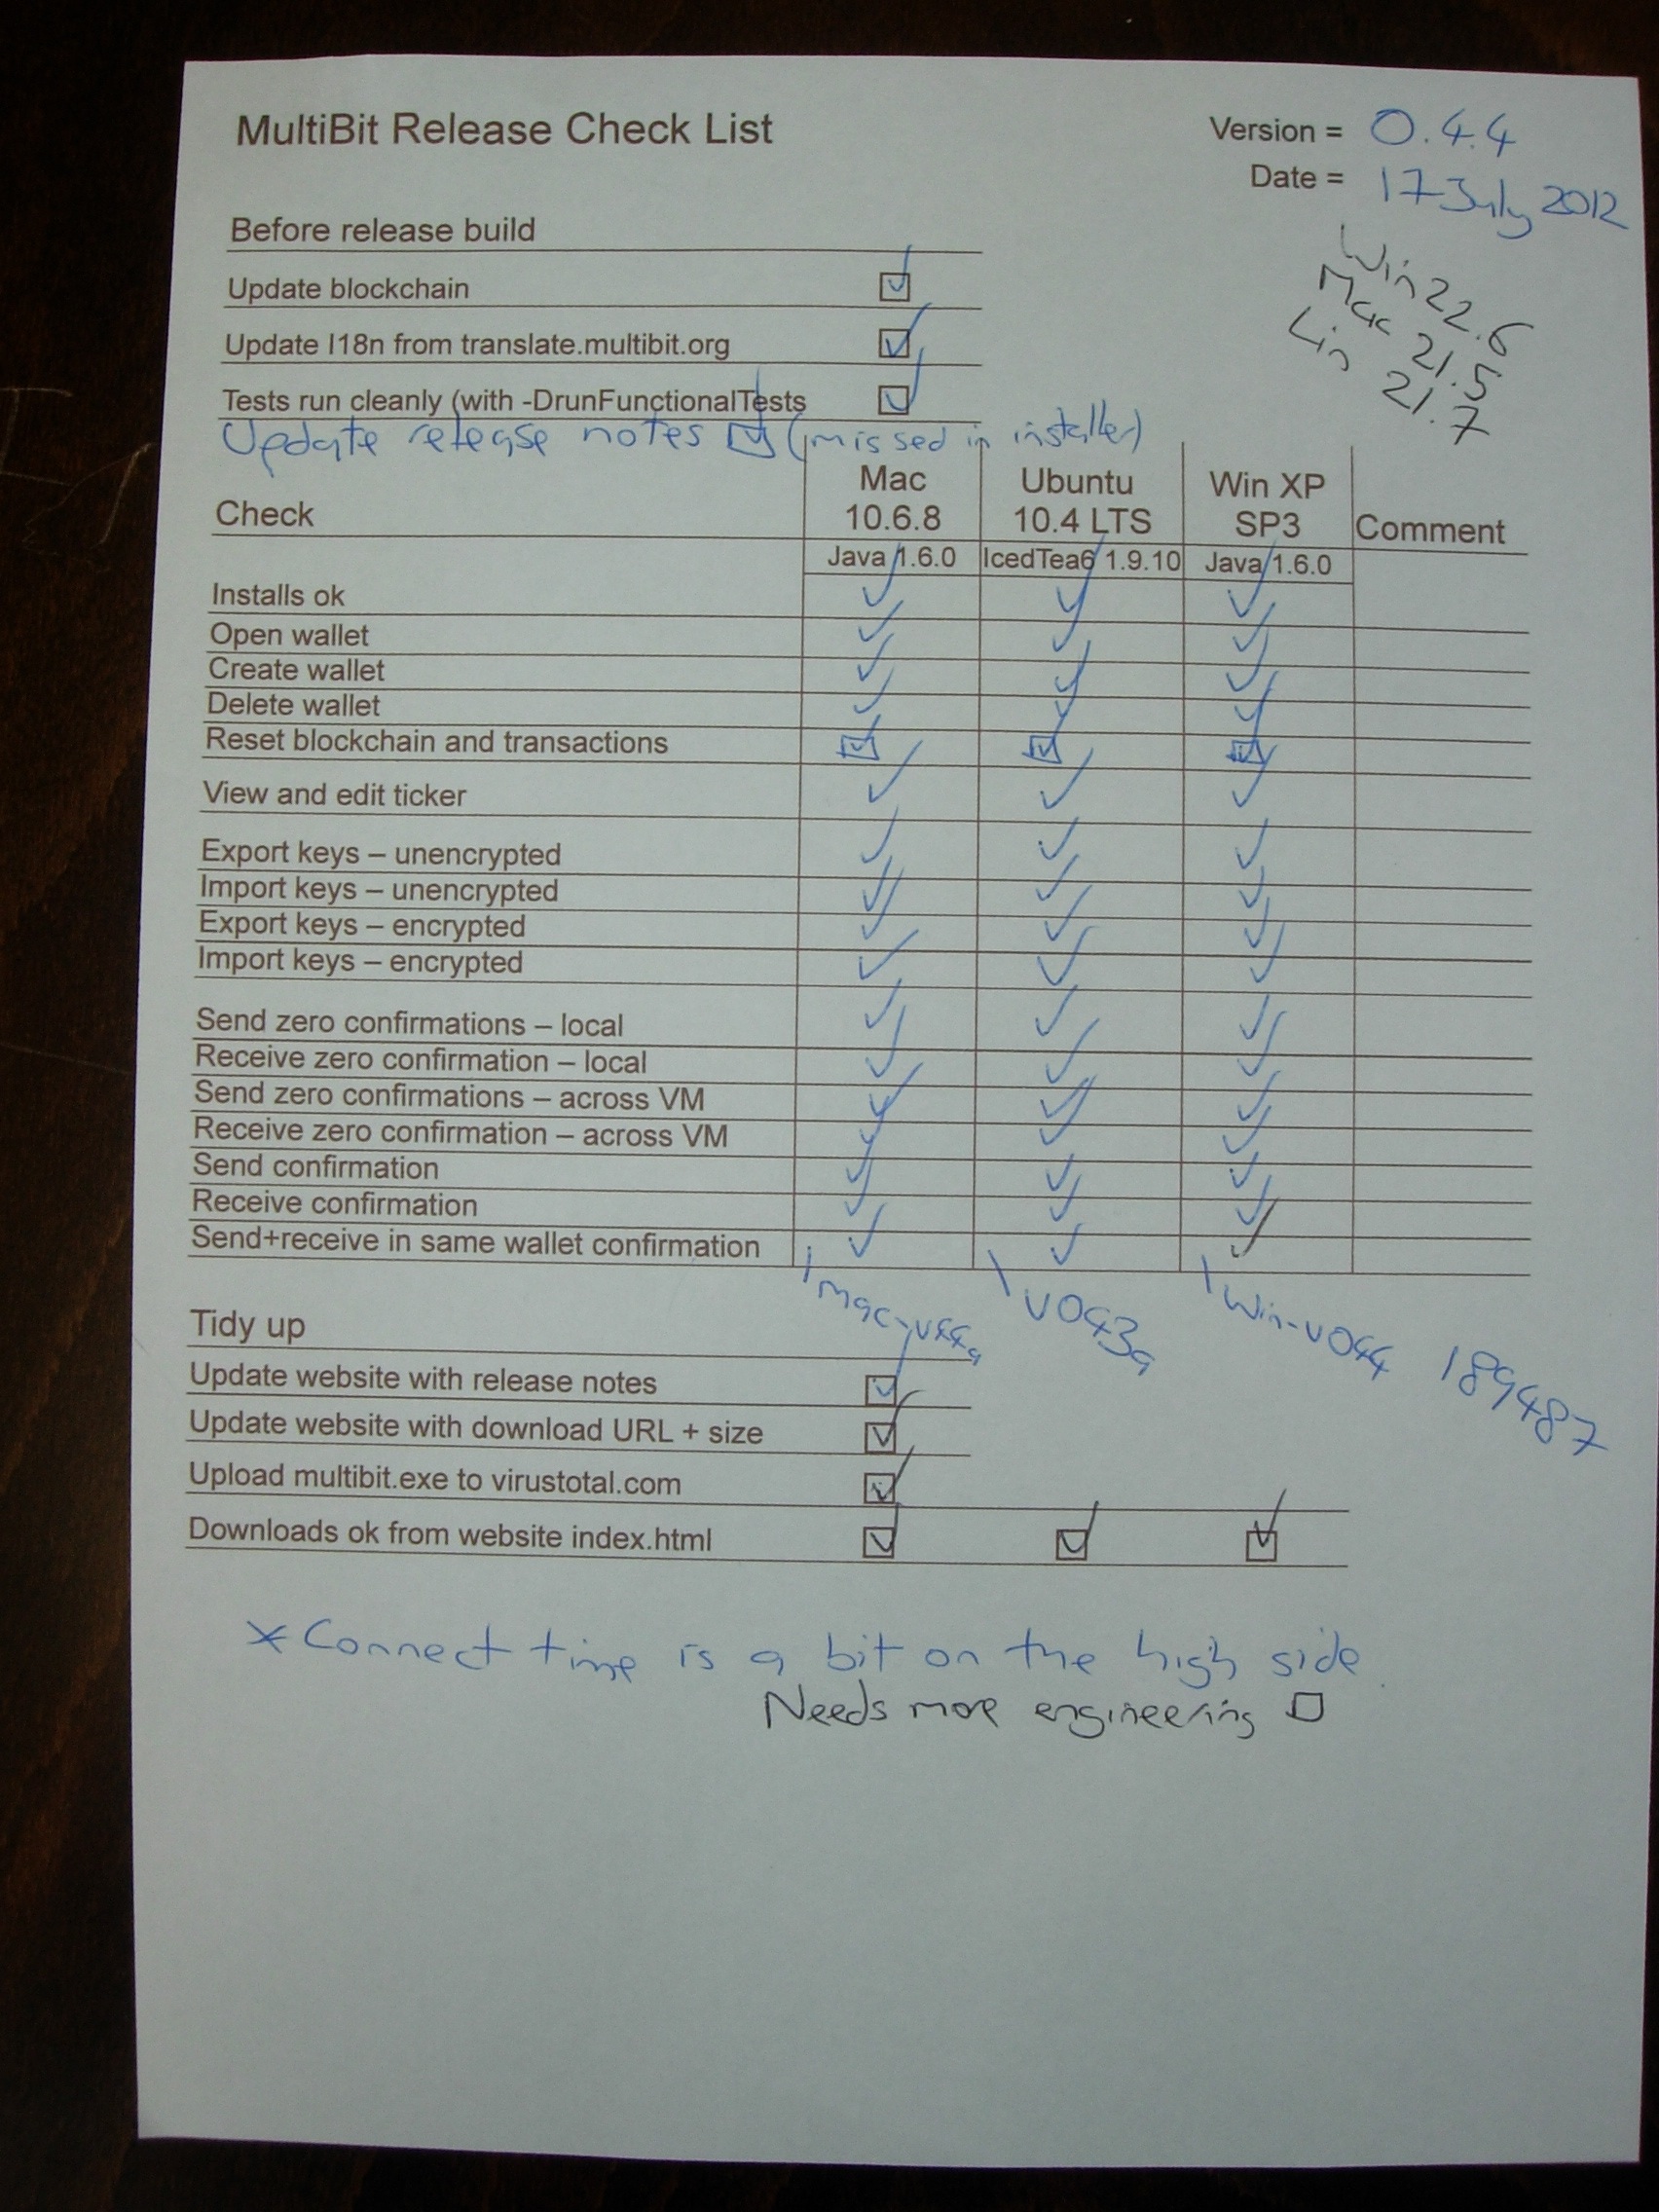 MultiBit Release Check List
Version = 0.4.4
Date = 17 July 2012
Win 22.6
Mac 21.5
Lin 21.7
Before release build
Update blockchain ☑
Update I18n from translate.multibit.org ☑
Tests run cleanly (with -DrunFunctionalTests ☑
Update release notes ☑ (missed in installer)
Check Mac 10.6.8 Ubuntu 10.4 LTS Win XP SP3 Comment
Java 1.6.0 IcedTea6 1.9.10 Java 1.6.0
Installs ok ✓ ✓ ✓
Open wallet ✓ ✓ ✓
Create wallet ✓ ✓ ✓
Delete wallet ✓ ✓ ✓
Reset blockchain and transactions ☑ ☑ ☑
View and edit ticker ✓ ✓ ✓
Export keys – unencrypted ✓ ✓ ✓
Import keys – unencrypted ✓ ✓ ✓
Export keys – encrypted ✓ ✓ ✓
Import keys – encrypted ✓ ✓ ✓
Send zero confirmations – local ✓ ✓ ✓
Receive zero confirmation – local ✓ ✓ ✓
Send zero confirmations – across VM ✓ ✓ ✓
Receive zero confirmation – across VM ✓ ✓ ✓
Send confirmation ✓ ✓ ✓
Receive confirmation ✓ ✓ ✓
Send+receive in same wallet confirmation ✓ ✓ ✓
Mac-v44a v043a Win-v044 189487
Tidy up
Update website with release notes ☑
Update website with download URL + size ☑
Upload multibit.exe to virustotal.com ☑
Downloads ok from website index.html ☑ ☑ ☑
* Connect time is a bit on the high side.
Needs more engineering ☐